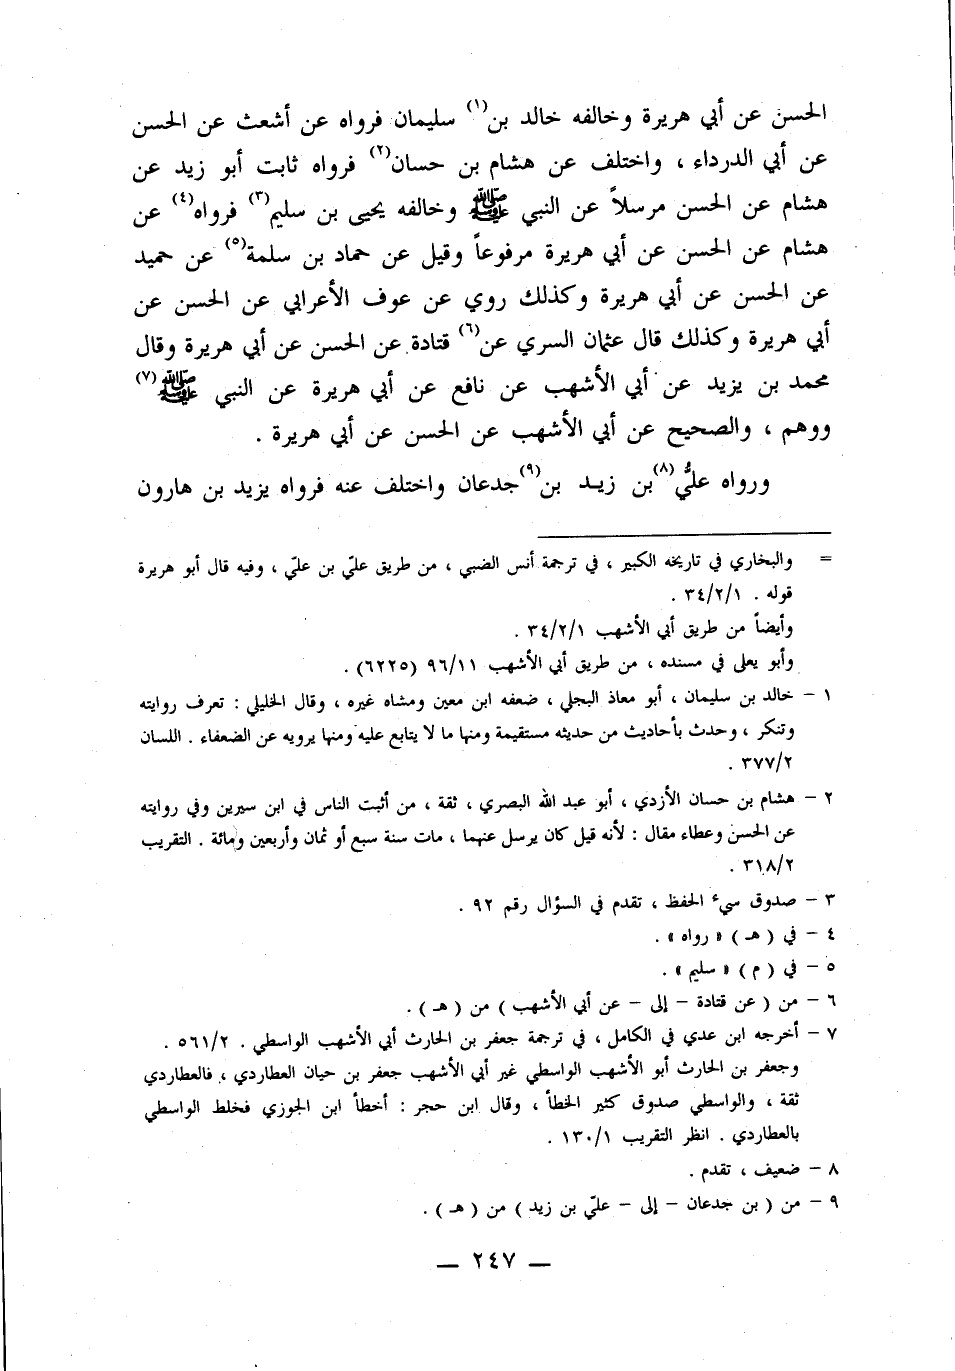 الحسن عن أبي هريرة وخالفه خالد بن(١) سليمان فرواه عن أشعث عن الحسن
عن أبي الدرداء ، واختلف عن هشام بن حسان(٢) فرواه ثابت أبو زيد عن
هشام عن الحسن مرسلاً عن النبي ﷺ وخالفه يحيى بن سليم(٣) فرواه(٤) عن
هشام عن الحسن عن أبي هريرة مرفوعاً وقيل عن حماد بن سلمة(٥) عن حميد
عن الحسن عن أبي هريرة وكذلك روي عن عوف الأعرابي عن الحسن عن
أبي هريرة وكذلك قال عثمان السري عن(٦) قتادة عن الحسن عن أبي هريرة وقال
محمد بن يزيد عن أبي الأشهب عن نافع عن أبي هريرة عن النبي ﷺ(٧)
ووهم ، والصحيح عن أبي الأشهب عن الحسن عن أبي هريرة .
ورواه عليُّ(٨) بن زيد بن(٩) جدعان واختلف عنه فرواه يزيد بن هارون
= والبخاري في تاريخه الكبير ، في ترجمة أنس الضبي ، من طريق عليّ بن عليّ ، وفيه قال أبو هريرة
قوله . ٣٤/٢/١ .
وأيضاً من طريق أبي الأشهب ٣٤/٢/١ .
وأبو يعلى في مسنده ، من طريق أبي الأشهب ٩٦/١١ (٦٢٢٥) .
١ - خالد بن سليمان ، أبو معاذ البجلي ، ضعفه ابن معين ومشاه غيره ، وقال الخليلي : تعرف روايته
وتنكر ، وحدث بأحاديث من حديثه مستقيمة ومنها ما لا يتابع عليه ومنها يرويه عن الضعفاء . اللسان
٣٧٧/٢ .
٢ - هشام بن حسان الأزدي ، أبو عبد الله البصري ، ثقة ، من أثبت الناس في ابن سيرين وفي روايته
عن الحسن وعطاء مقال : لأنه قيل كان يرسل عنهما ، مات سنة سبع أو ثمان وأربعين ومائة . التقريب
٣١٨/٢ .
٣ - صدوق سيء الحفظ ، تقدم في السؤال رقم ٩٢ .
٤ - في ( هـ ) « رواه » .
٥ - في ( م ) « سليم » .
٦ - من ( عن قتادة - إلى - عن أبي الأشهب ) من ( هـ ) .
٧ - أخرجه ابن عدي في الكامل ، في ترجمة جعفر بن الحارث أبي الأشهب الواسطي . ٥٦١/٢ .
وجعفر بن الحارث أبو الأشهب الواسطي غير أبي الأشهب جعفر بن حيان العطاردي ، فالعطاردي
ثقة ، والواسطي صدوق كثير الخطأ ، وقال ابن حجر : أخطأ ابن الجوزي فخلط الواسطي
بالعطاردي . انظر التقريب ١٣٠/١ .
٨ - ضعيف ، تقدم .
٩ - من ( بن جدعان - إلى - عليّ بن زيد ) من ( هـ ) .
— ٢٤٧ —